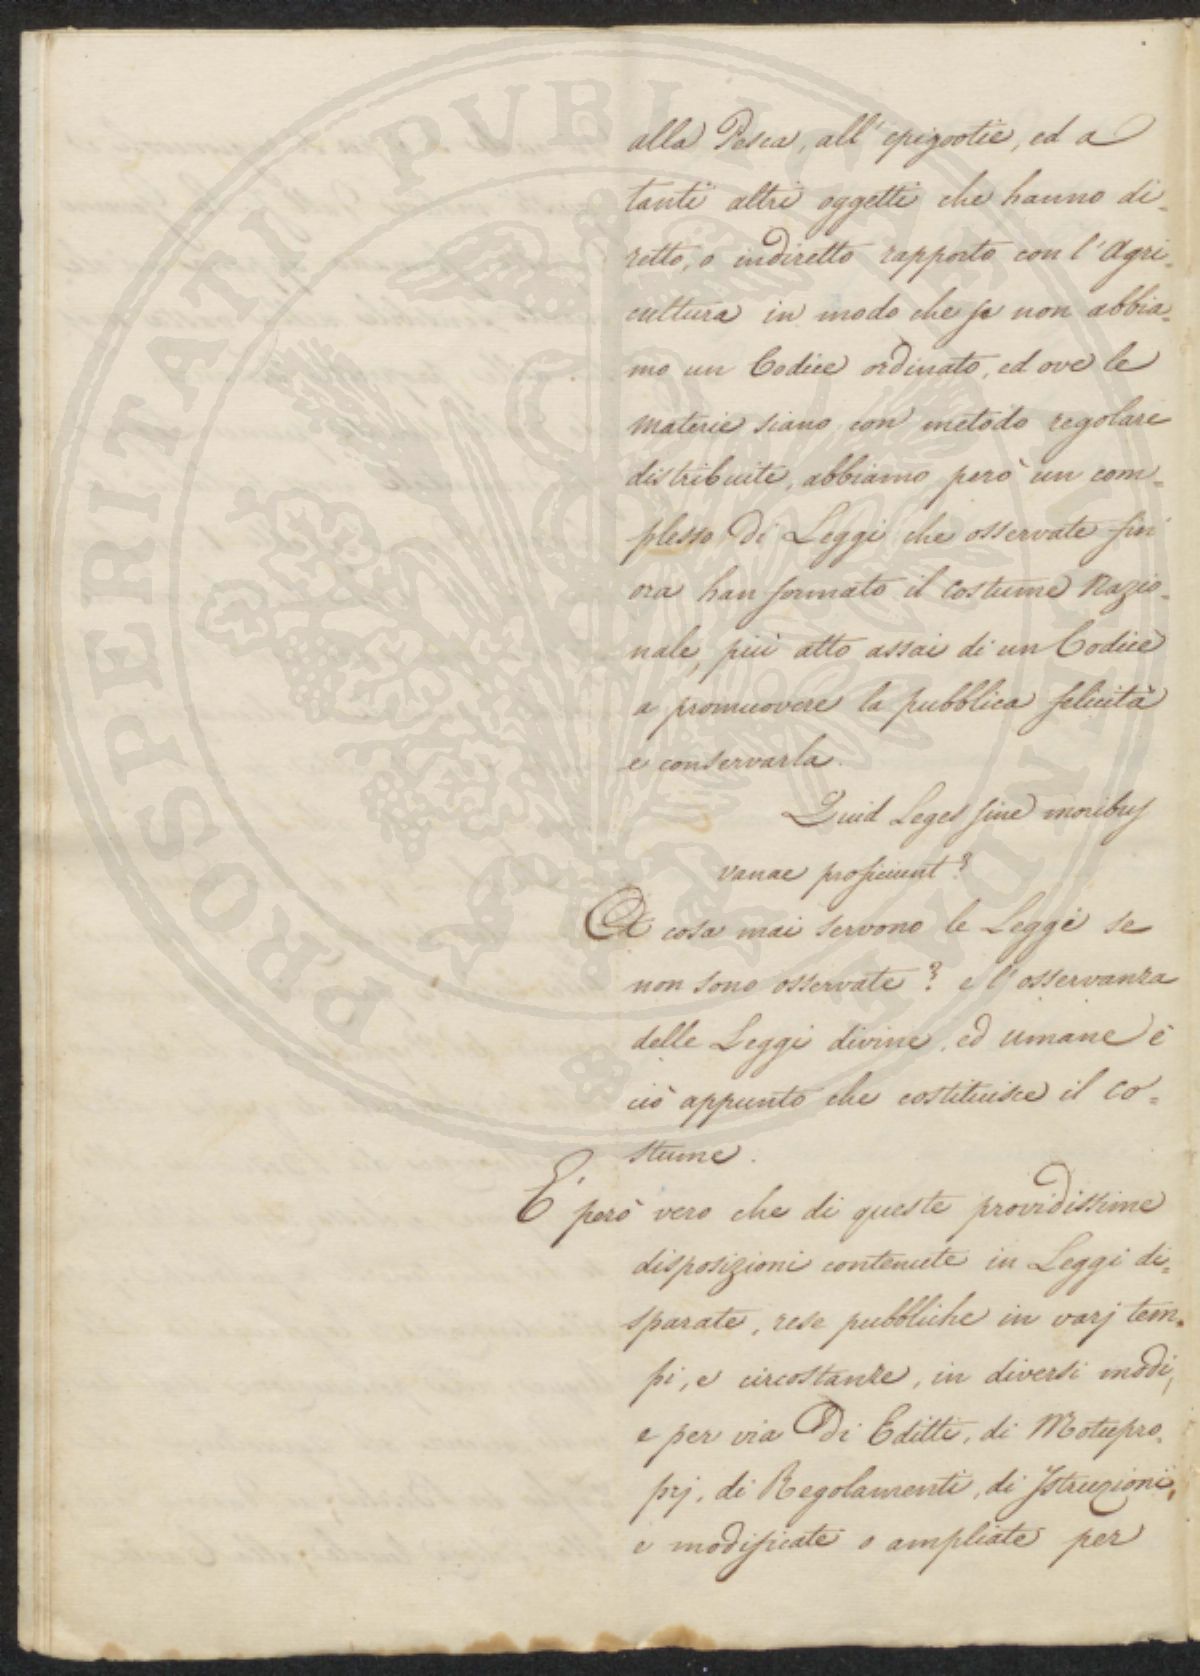 alla Pesca, all'epizootie, ed a
tanti altri oggetti che hanno di-
retto, o indiretto rapporto con l'Agri-
cultura in modo che se non abbia-
mo un Codice ordinato, ed ove le
materie siano con metodo regolare
distribuite, abbiamo però un com-
plesso di Leggi che osservate fin
ora han formato il Costume Nazio-
nale, più atto assai di un Codice
a promuovere la pubblica felicità
e conservarla.
Quid Leges sine moribus
vanae proficiunt?
A cosa mai servono le Leggi se
non sono osservate? e l'osservanza
delle Leggi divine, ed umane è
ciò appunto che costituisce il Co-
stume.
E' però vero che di queste providissime
disposizioni contenute in Leggi di-
sparate, rese pubbliche in varj tem-
pi, e circostanze, in diversi modi,
e per via di Editti, di Motupro-
prj, di Regolamenti, di Istruzioni,
e modificate o ampliate per
PROSPERITATI PUBLICAE AUGENDAE